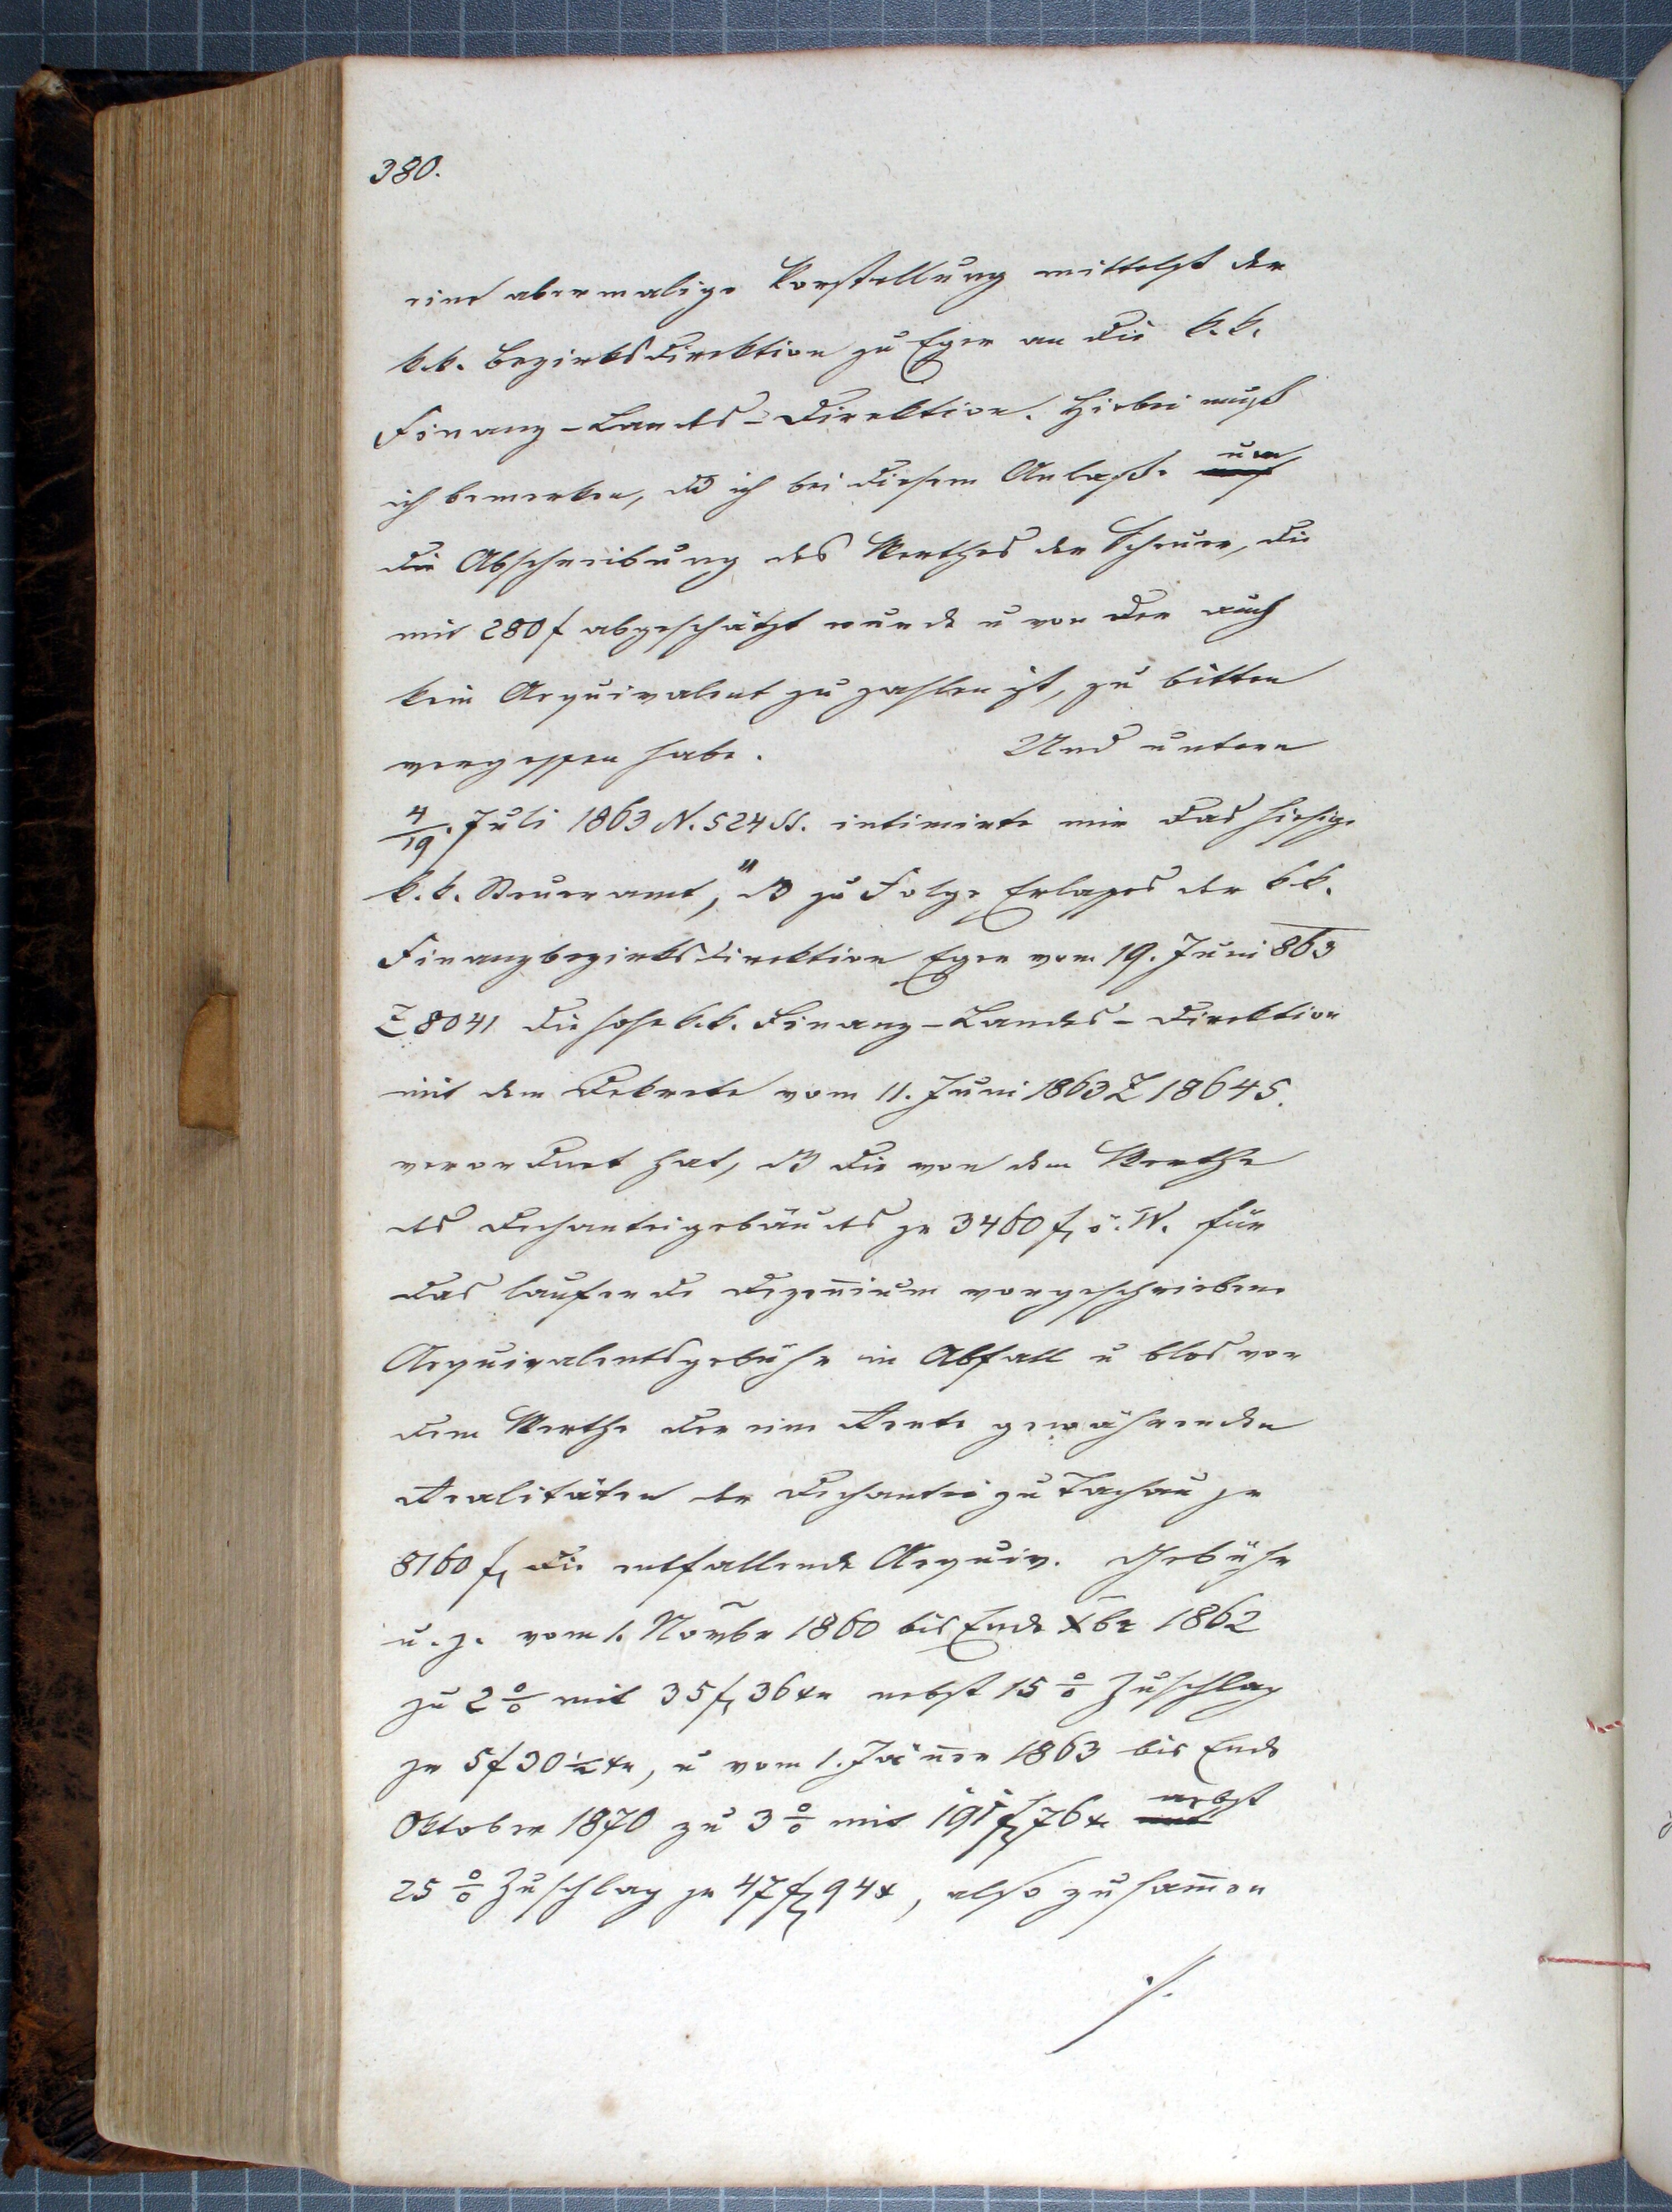 380.
eine abermalige Vorstellung mittelst der
k.k. Bezirksdirektion zu Eger an die k.k.
Finanz-Landes-Direktion. Hiebei muß
ich bemerken, dß ich bei diesem Anlaße um
die Abschreibung des Werthes der Scheuer, die
mit 280 f abgeschätzt wurde u von der auch
kein Aequivalent zu zahlen ist, zu bitten
vergessen habe. Und unterm
4/19. Juli 1863 N. 524 St. intimirte mir das hiesige
k.k. Steueramt, "dß zu Folge Erlaßes der k.k.
Finanzbezirksdirektion Eger vom 19. Juni 863
Z 8041 die hohe k.k. Finanz-Landes-Direktion
mit dem Dekrete vom 11. Juni 1863 Z 18645.
verordnet hat, dß die von dem Werthe
des Dechanteigebäudes pr 3460 f ö. W. für
das laufende Dezenium vorgeschriebene
Aequivalentsgebühr in Abfall u blos von
dem Werthe der eine Rente gewährenden
Realitäten der Dechantei zu Tachau pr
8160 f die entfallende Aequiv. Gebühr
u. z. vom 1. Novbr 1860 bis Ende Xbr 1862
zu 2 % mit 35 f 36 xr nebst 15 % Zuschlag
pr 5 f 30 1/2 xr, u vom 1. Jäner 1863 bis Ende
Oktober 1870 zu 3 % mit 191 f 76 x nebst
25 % Zuschlag pr 47 f 94 x, also zusamen
./.